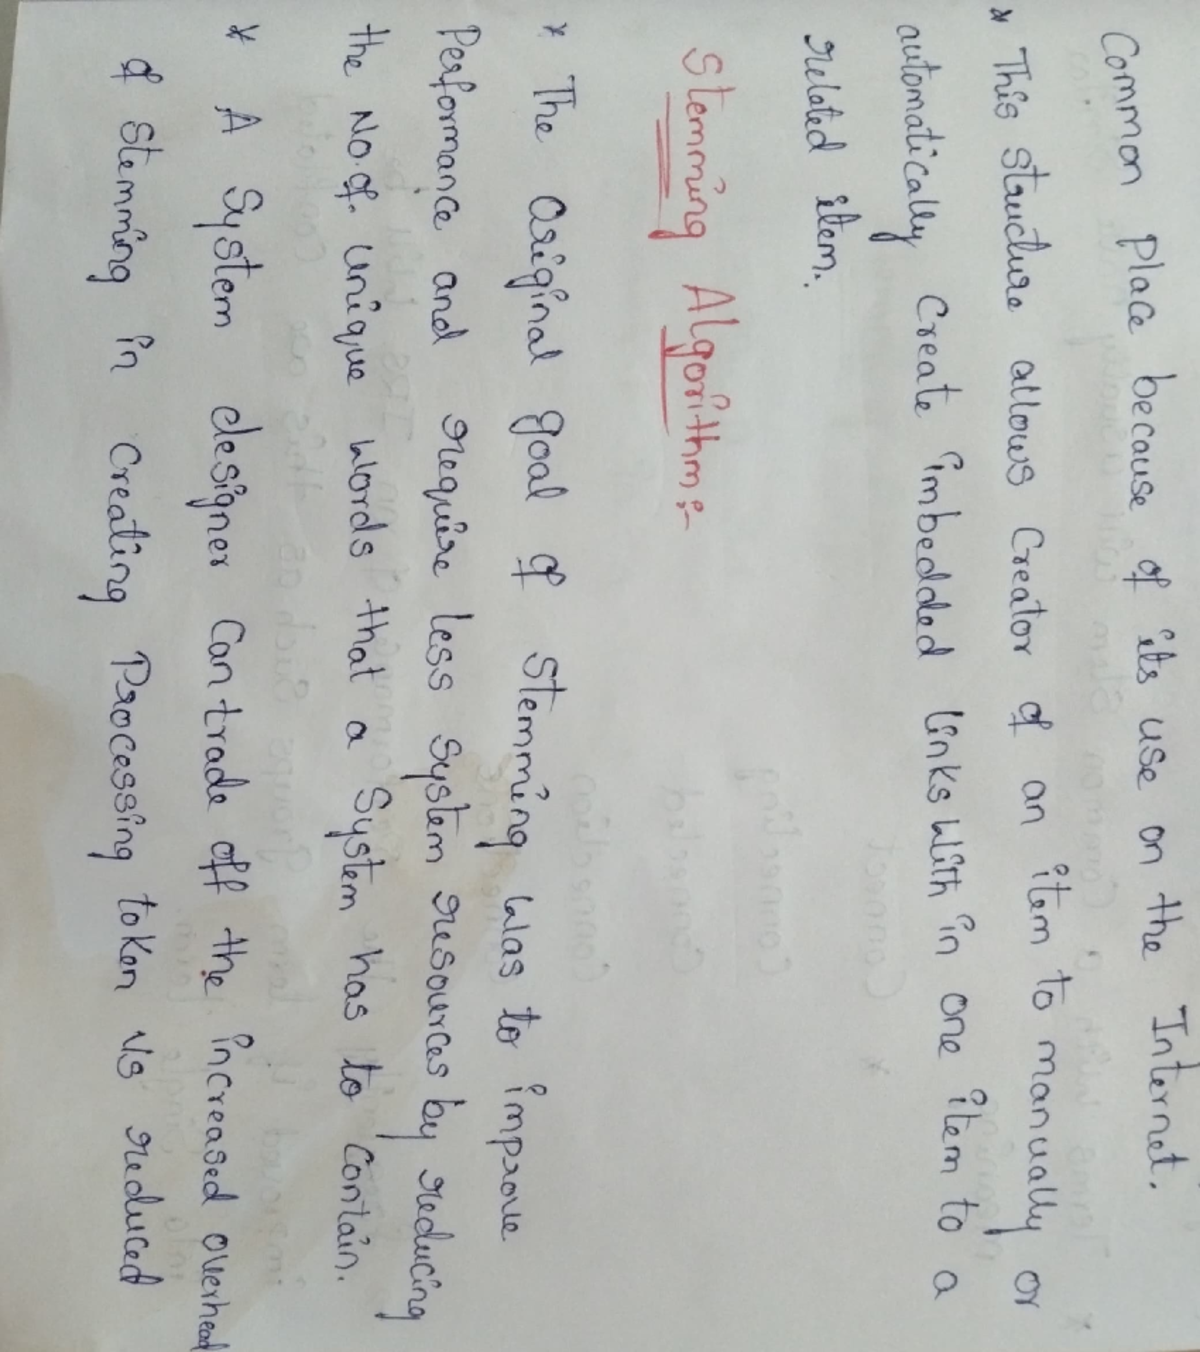 Common Place because of its use on the Internet.
* This structure allows Creator of an item to manually or
automatically Create imbedded links with in one item to a
related item.
Stemming Algorithm:-
* The original goal of stemming was to improve
Performance and require less System resources by reducing
the No.of. unique words that a System has to Contain.
* A System designer Can trade off the increased overhead
of stemming in Creating Processing token Vs reduced